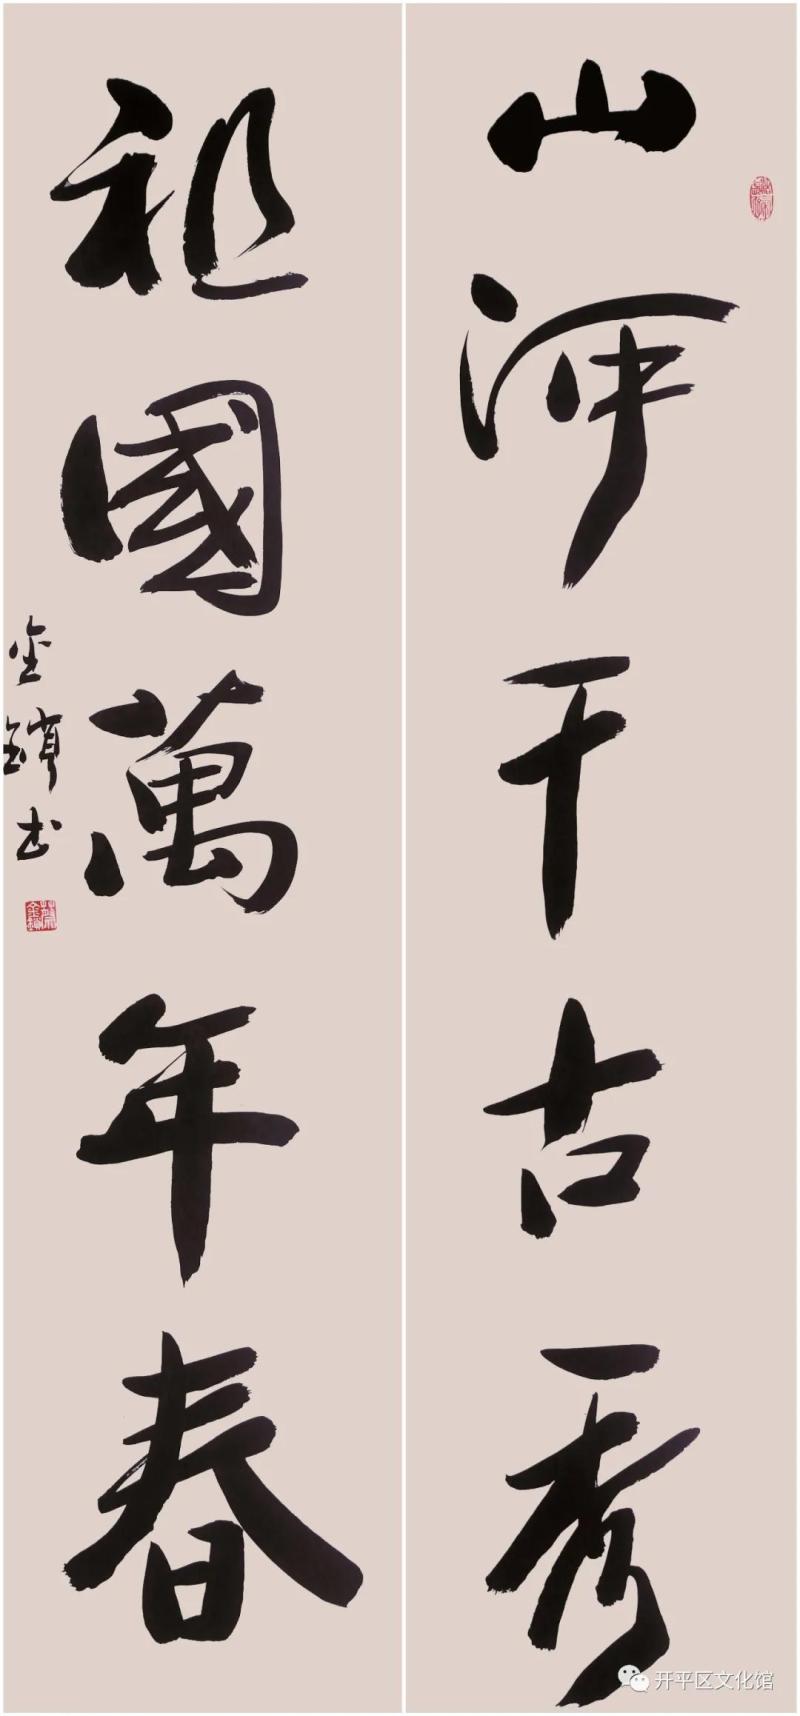 山河千古秀
祖國萬年春
金鐸书
开平区文化馆